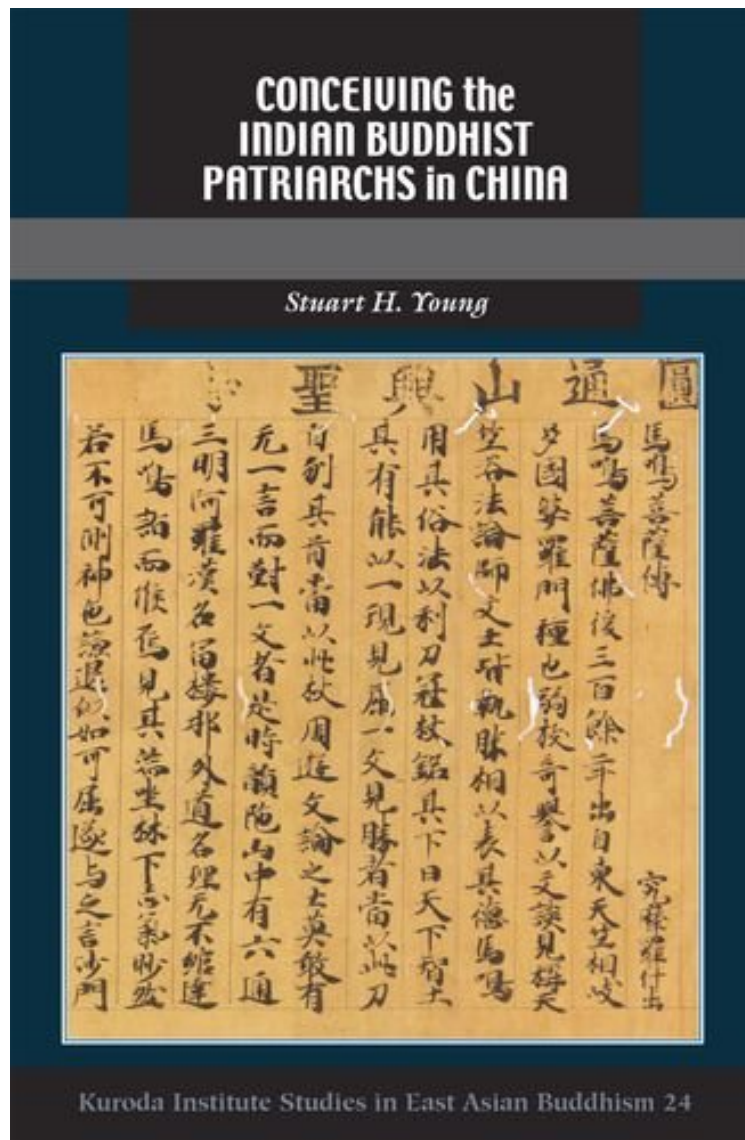 CONCEIVING the
INDIAN BUDDHIST
PATRIARCHS in CHINA
Stuart H. Young
圓通山興聖
馬鳴菩薩傳
羅什出
馬鳴菩薩佛後三百餘年出自東天竺
多國婆羅門種也弱奇譽以文談見稱天
竺法論師文士皆執勝相以表其德馬鳴
用其俗法以利刀冠杖銘其下曰天下智士
其有能以一理見屈一文見勝者當以此刀
自刎其首常以此杖周遊文論之士莫敢有
无一言而對一文者是時韻陁山中有六通
三明阿羅漢名富樓那外道名理无不綰達
馬鳴詣而候焉見其端坐林下志氣眇然
若不可測神色謙退似如可屈遂与之言沙門
Kuroda Institute Studies in East Asian Buddhism 24